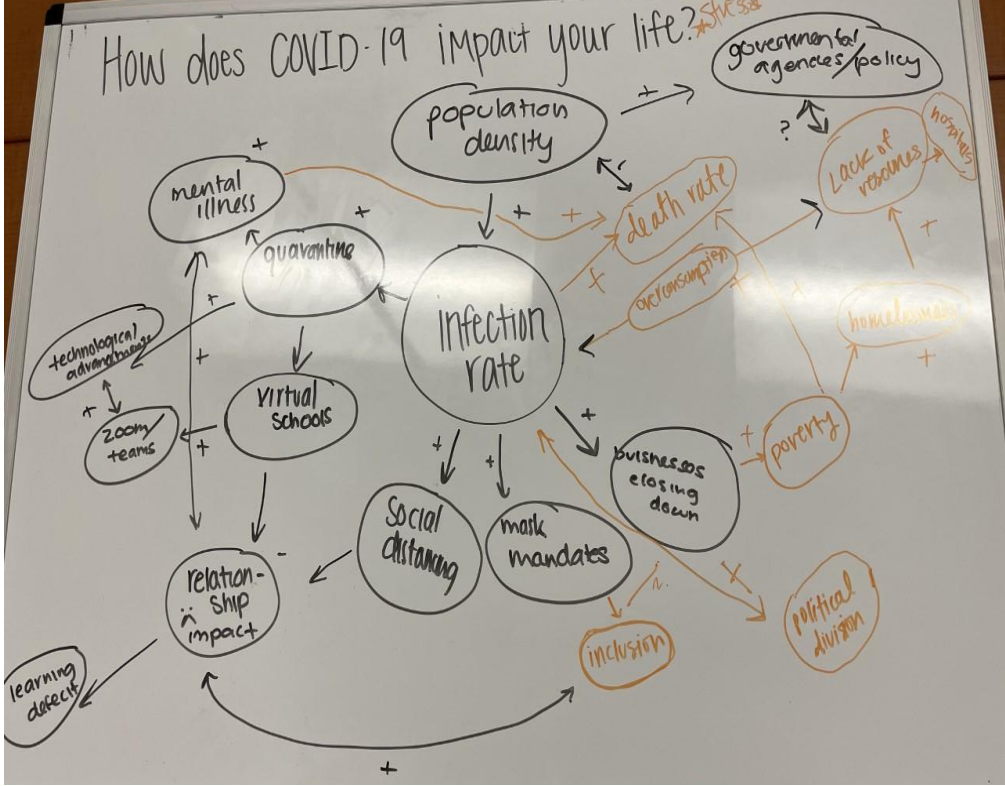 How does COVID-19 impact your life?
*Stress
governmental
agencies/policy
population
density
+
?
Lack of
resources
hospitals
mental
illness
+
death rate
+
+
+
quarantine
+
overconsumption
+
+
infection
rate
homelessness
+
+
technological
+
+
virtual
schools
zoom/
teams
+
+
poverty
+
+
buisnesses
closing
down
+
+
social
distancing
mask
mandates
relation-
ship
impact
-
inclusion
political
division
learning
defecit
+